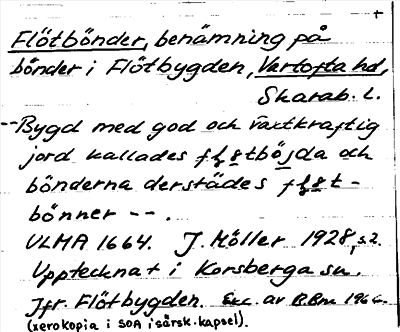 +
Flötbönder, benämning på
bönder i Flötbygden, Vartofta hd,
Skarab. l.
--Bygd med god och växtkraftig
jord kallades fløtböjda och
bönderna derstädes fløt-
bönner --.
ULMA 1664. J. Möller 1928, s.2.
Upptecknat i Korsberga sn.
Jfr. Flötbygden. Exc. av B.Bm 1966.
(xerokopia i SOA i särsk. kapsel).